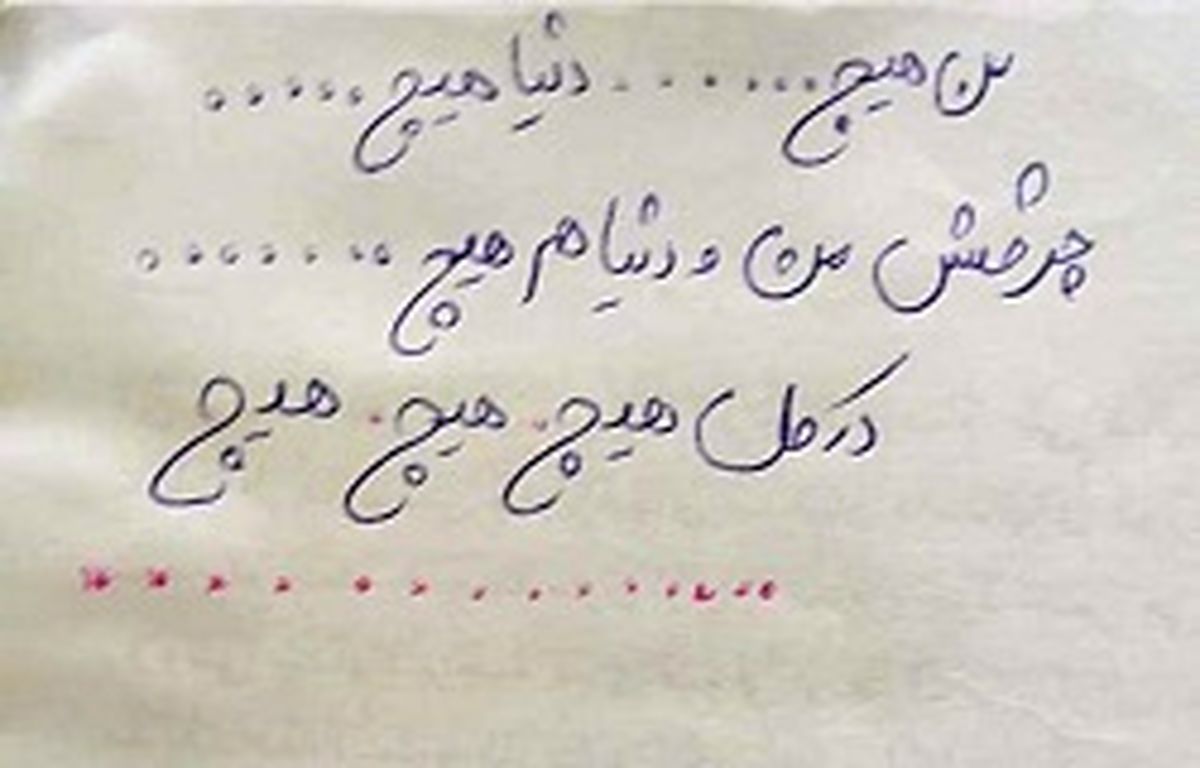 من هیچ......... دنیا هیچ.....
چرخش من و دنیا هم هیچ........
در کل هیچ. هیچ. هیچ
...............